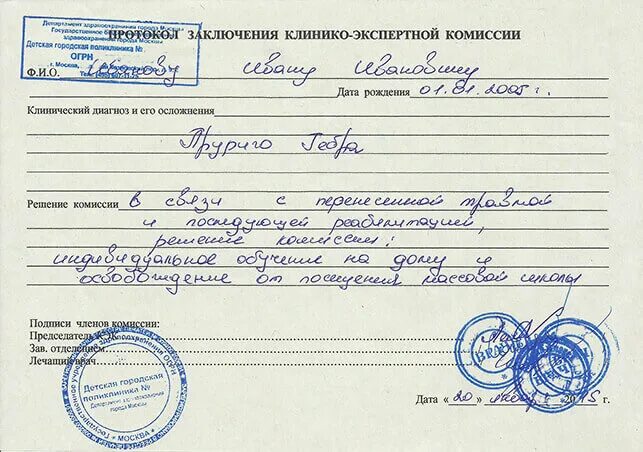 Департамент здравоохранения города Москвы
Государственное бюджетное
здравоохранения города Москвы
Детская городская поликлиника №
ОГРН
г. Москва,
ПРОТОКОЛ ЗАКЛЮЧЕНИЯ КЛИНИКО-ЭКСПЕРТНОЙ КОМИССИИ
Ф.И.О. Иванову Ивану Ивановичу
Дата рождения 01.01.2005 г.
Клинический диагноз и его осложнения
Пруриго Гебра
Решение комиссии в связи с перенесенной травмой
и последующей реабилитацией,
решение комиссии:
индивидуальное обучение на дому и
освобождение от посещения массовой школы
Подписи членов комиссии:
Председатель
Зав. отделением
Лечащий врач
Детская городская
поликлиника №
города Москвы
* МОСКВА *
ВРАЧ
Дата « 20 » 2015 г.